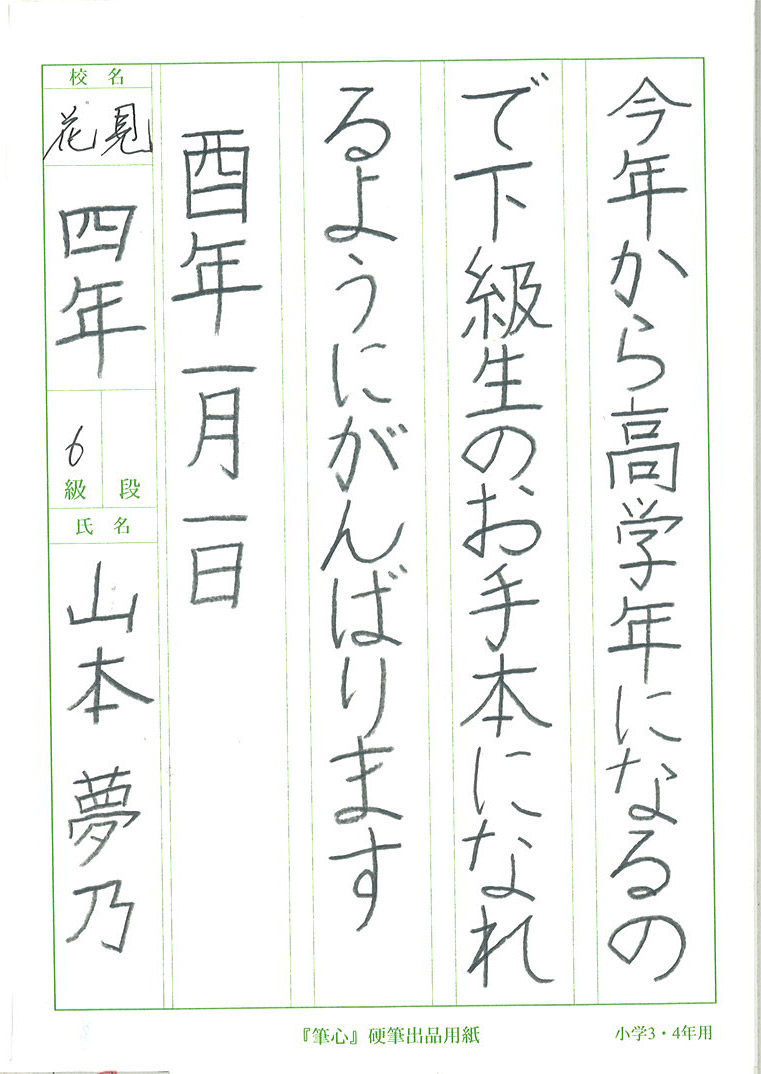 今年から高学年になるの
で下級生のお手本になれ
るようにがんばります
酉年一月一日
校名
花見
四年
6級
段
氏名
山本夢乃
『筆心』硬筆出品用紙
小学3・4年用